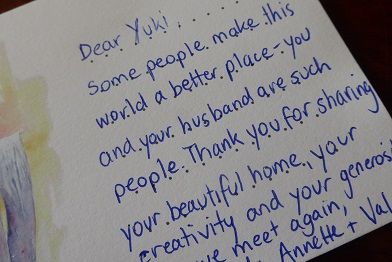 Dear Yuki.....
Some people make this
world a better place-you
and your husband are such
people. Thank you for sharing
your beautiful home, your
creativity and your
we meet again,
Annette + Val